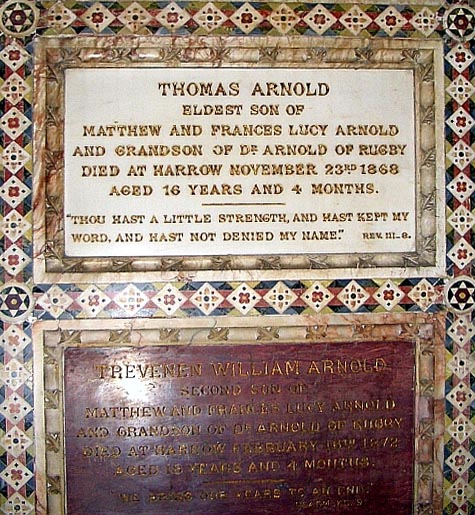 THOMAS ARNOLD
ELDEST SON OF
MATTHEW AND FRANCES LUCY ARNOLD
AND GRANDSON OF DR ARNOLD OF RUGBY
DIED AT HARROW NOVEMBER 23RD 1868
AGED 16 YEARS AND 4 MONTHS.
"THOU HAST A LITTLE STRENGTH, AND HAST KEPT MY
WORD, AND HAST NOT DENIED MY NAME." REV. III-8.
TREVENEN WILLIAM ARNOLD
SECOND SON OF
MATTHEW AND FRANCES LUCY ARNOLD
AND GRANDSON OF DR ARNOLD OF RUGBY
DIED AT HARROW FEBRUARY 16TH 1872
AGED 18 YEARS AND 4 MONTHS.
"WE BRING OUR YEARS TO AN END"